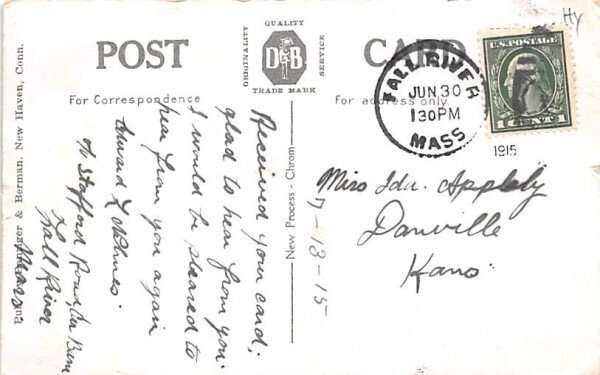 POST CARD
QUALITY
ORIGINALITY
D&B
SERVICE
TRADE MARK
For Correspondence
For address only
New Haven, Conn.
New Process - Chrom
Received your card,
glad to hear from you.
I would be pleased to
hear from you again
Edward
Stafford Road,
Fall River
Mass.
FALL RIVER
JUN 30
130 PM
MASS
1915
U.S. POSTAGE
1 CENT 1
Hy
Miss Ida. Appleby
Danville
Kans.
7-13-15